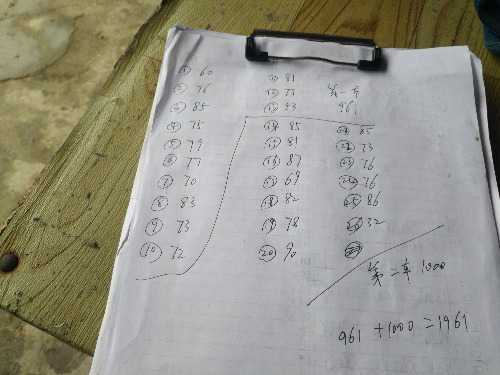 ① 60
② 76
③ 85
④ 75
⑤ 79
⑥ 77
⑦ 70
⑧ 83
⑨ 73
⑩ 72
⑪ 81
⑫ 77
⑬ 53
⑭ 85
⑮ 81
⑯ 87
⑰ 69
⑱ 82
⑲ 78
⑳ 90
第一车
961
㉑ 85
㉒ 73
㉓ 76
㉔ 76
㉕ 86
㉖ 32
第二车 1000
961+1000=1961